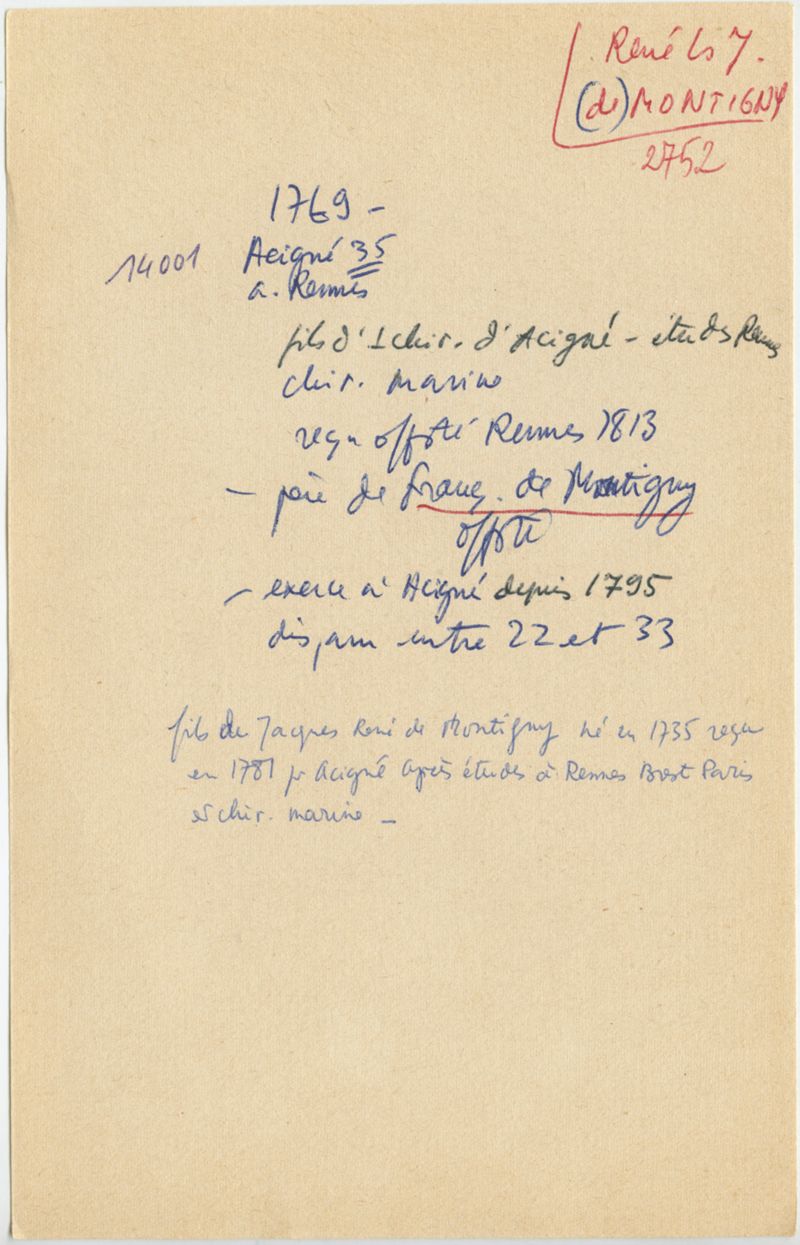 René Ls J.
(de) MONTIGNY
2752
1769 -
14001 Acigné 35
a. Rennes
fils d'1 chir. d'Acigné - études Rennes
chir. marine
reçu offsté Rennes 1813
- père de Franç. de Montigny
offsté
- exerce à Acigné depuis 1795
disparu entre 22 et 33
fils de Jacques René de Montigny né en 1735 reçu
en 1781 pr Acigné après études à Rennes Brest Paris
et chir. marine -